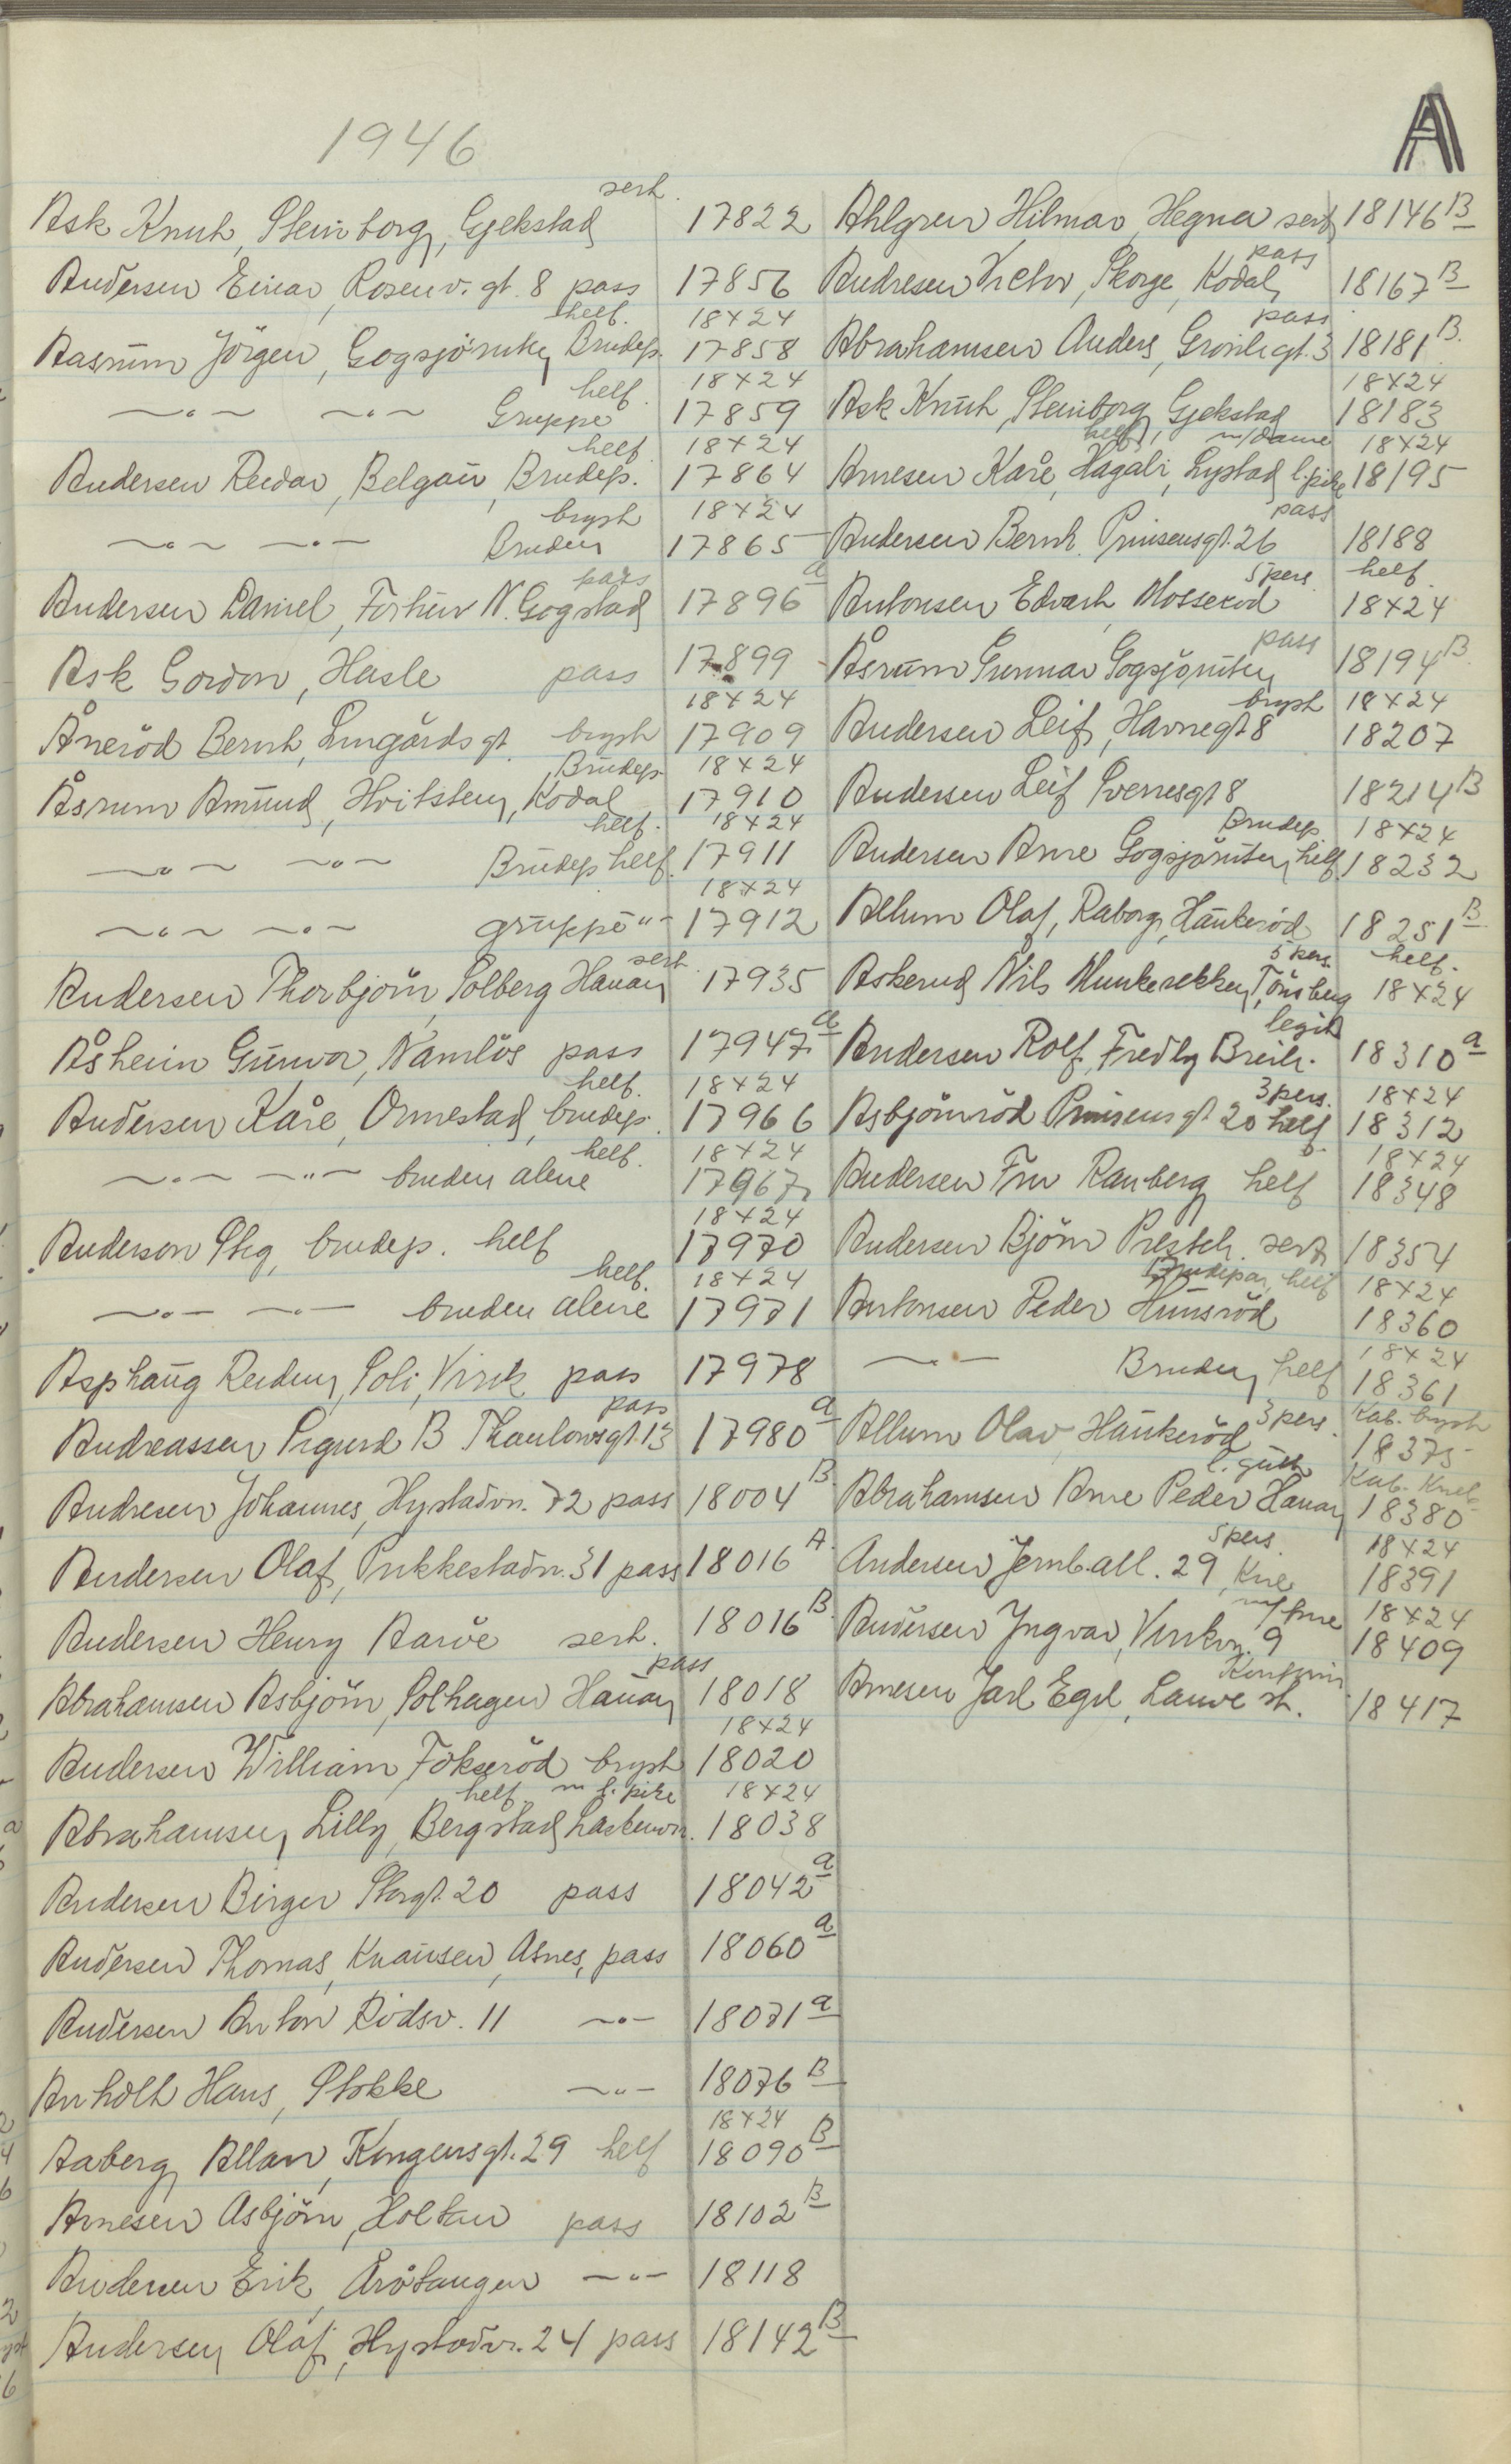 A
1946
Ask Knut, Steinborg, Gjekstad sert. 17822
Andersen Einar, Rosenv. gt. 8 pass 17856
Aasrum Jörgen, Gogsjöruten Brudep. helf. 18x24 17858
—"— —"— Gruppe helf. 18x24 17859
Andersen Reidar, Belgau, Brudep. helf. 18x24 17864
—"— —"— Bruden bryst 18x24 17865
Andersen Daniel, Fortun N. Gogstad pass 17896 a
Ask Gordon, Hasle pass 17899
Åneröd Bernh, Lingårdsgt. bryst 18x24 17909
Åsrum Amund, Hvitstein, Kodal Brudep. 18x24 17910
—"— —"— Brudep helf. helf. 18x24 17911
—"— —"— gruppe "- 18x24 17912
Andersen Thorbjörn, Solberg Hauan sert. 17935
Åsheim Gunvor, Namlös pass 17947 a
Andersen Kåre, Ormestad, brudep. helf. 18x24 17966
—"— —"— bruden alene helf. 18x24 17967
Anderson Stig, brudep. helf 18x24 17970
—"— —"— bruden alene helf. 18x24 17971
Asphaug Reidun, Soli, Virik pass 17978
Andreassen Sigurd B Thaulowsgt. 13 pass 17980 a
Andresen Johannes, Hystadvn. 72 pass 18004 B
Andersen Olaf, Prekkestadvn. 31 pass 18016 A
Andersen Henry Aaröe sert. 18016 B.
Abrahamsen Asbjörn, Solhagen Hauan pass 18018
Andersen William, Fokseröd bryst 18x24 18020
Abrahamsen Lilly, Bergstad, Laskenvn. helf. m l. pike 18x24 18038
Andersen Birger Storgt. 20 pass 18042 a
Andersen Thomas, Knausen, Asnes, pass 18060 a
Andersen Anton Rödsv. 11 —"— 18071 a
Anholt Hans, Stokke —"— 18076 B
Aaberg Allan, Kongensgt. 29 helf 18x24 18090 B
Arnesen Asbjörn, Holtan pass 18102 B
Andersen Erik, Årötangen —"— 18118
Andersen Olaf, Hystadvn. 24 pass 18142 B
Ahlgren Hilmar, Hegna sert 18146 B
Andresen Victor, Skorge, Kodal pass 18167 B
Abrahamsen Anders, Gronligt. 3 pass 18181 B.
Ask Knut, Steinborg, Gjekstad 18x24 18183
Arnesen Kåre, Hagali, Lystad l. pike helf, m/dame 18x24 18195
Andersen Bernh. Prinsensgt. 26 pass 18188
Antonsen Edvart, Mosserød 5 pers helf. 18x24
Åsrum Gunnar Gogsjöruten pass 18194 B.
Andersen Leif, Havnegt 8 bryst 18x24 18207
Andersen Leif Sverresgt 8 18214 B
Andersen Arne Gogsjöruten helf. Brudep. 18x24 18232
Allum Olaf, Raborg, Haukeröd 18251 B
Askerud Nils Munkerekken, Tönsberg 5 pers. helf. 18x24
Andersen Rolf, Fredly Breili. legit 18310 a
Asbjörnröd Prinsensgt 20 helf. 3 pers. 18x24 18312
Andersen Fru Ranberg helf 18x24 18348
Andersen Björn Presteh. sert 18354
Antonsen Peder Hunsröd Brudepar, helf 18x24 18360
—"— Bruden helf 18x24 18361
Allum Olav Haukeröd 3 pers. Kab. bryst 18375
Abrahamsen Arne Peder Hauan l. gutt Kab. Knest 18380
Andersen Jernb. all. 29, Kne 5 pers. 18x24 18391
Andersen Yngvar, Virikvn. 9 m/frue 18x24 18409
Arnesen Jarl Egil, Lauve st. Konfirm 18417